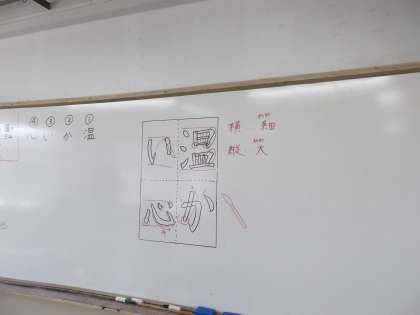 ① ② ③ ④
温 か い 心
温か
い心
横…細
縦 太